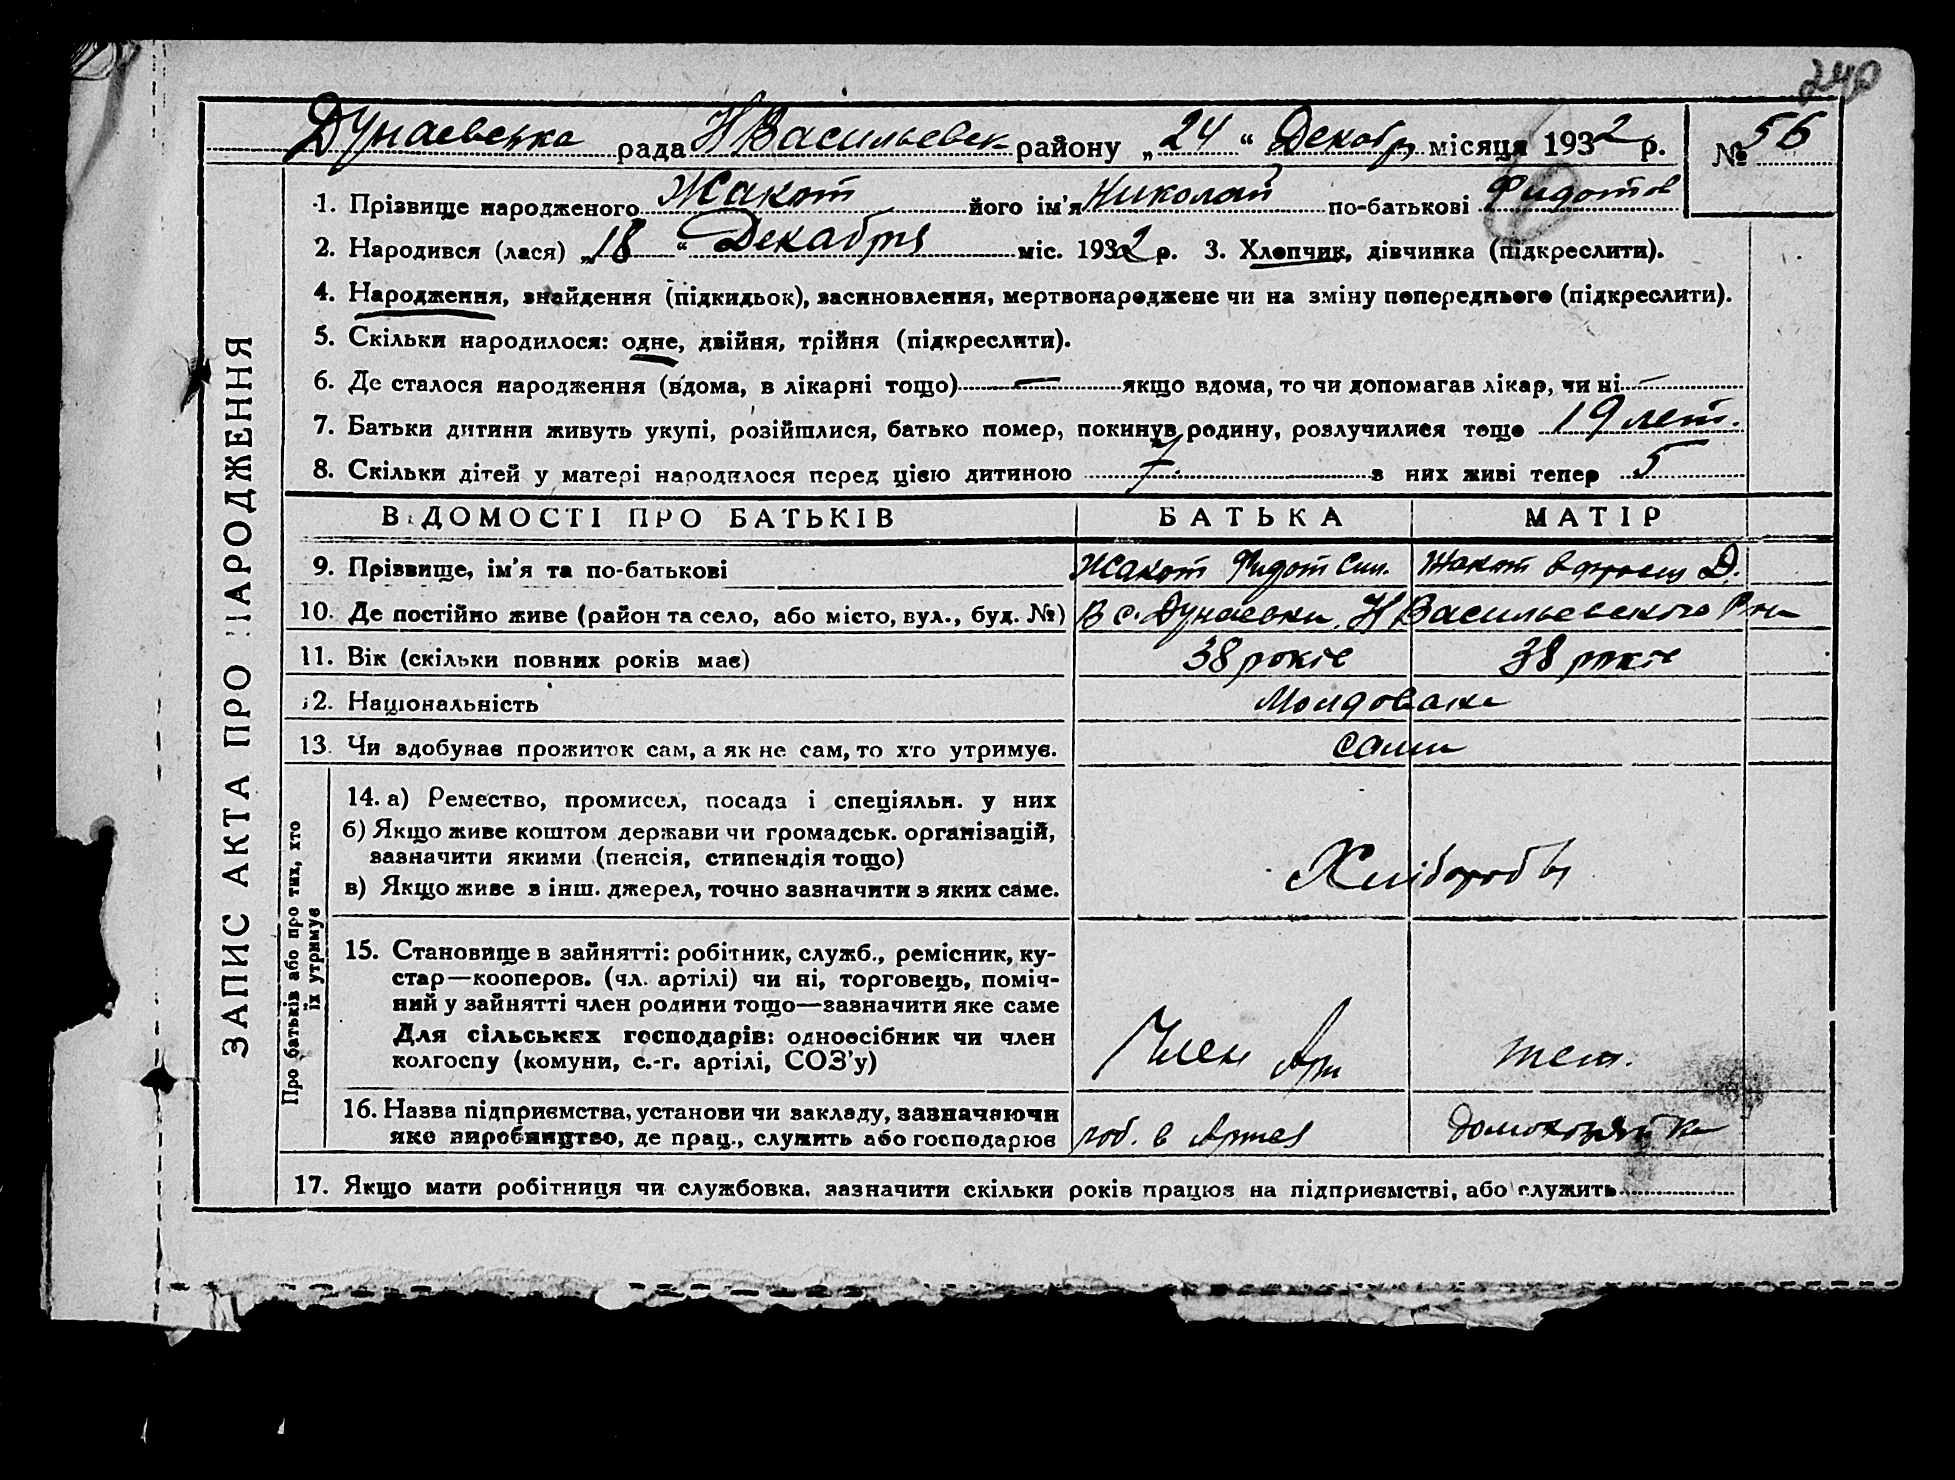 240
Дунаевська рада Н Васильевск району „24“ Декабр місяця 1932 р. № 56
ЗАПИС АКТА ПРО НАРОДЖЕННЯ
1. Прізвище народженого Жакот його ім'я Николай по-батькові Фидотов
2. Народився (лася) „18“ Декабря міс. 1932 р. 3. Хлопчик, дівчинка (підкреслити).
4. Народження, знайдення (підкидьок), засиновлення, мертвонароджене чи на зміну попереднього (підкреслити).
5. Скільки народилося: одне, двійня, трійня (підкреслити).
6. Де сталося народження (вдома, в лікарні тощо) — якщо вдома, то чи допомагав лікар, чи ні —
7. Батьки дитини живуть укупі, розійшлися, батько помер, покинув родину, розлучилися тощо 19 лет.
8. Скільки дітей у матері народилося перед цією дитиною 7. з них живі тепер 5
ВІДОМОСТІ ПРО БАТЬКІВ БАТЬКА МАТІР
9. Прізвище, ім'я та по-батькові Жакот Фидот Сим. Жакот Д.
10. Де постійно живе (район та село, або місто, вул., буд. №) В с. Дунаевки Н Васильевского Р-на
11. Вік (скільки повних років має) 38 років 38 років
12. Національність Молдоване
13. Чи здобуває прожиток сам, а як не сам, то хто утримує. сами
Про батьків або про тих, хто
їх утримує
14. а) Ремество, промисел, посада і спеціяльн. у них
б) Якщо живе коштом держави чи громадськ. організацій,
зазначити якими (пенсія, стипендія тощо)
в) Якщо живе з інш. джерел, точно зазначити з яких саме.
Хлібороби
15. Становище в зайнятті: робітник, служб., ремісник, ку-
стар—кооперов. (чл. артілі) чи ні, торговець, поміч-
ний у зайнятті член родини тощо—зазначити яке саме
Для сільських господарів: одноосібник чи член
колгоспу (комуни, с.-г. артілі, СОЗ'у)
Член Арт
16. Назва підприємства, установи чи закладу, зазначаючи
яке виробництво, де прац., служить або господарює
роб. в Артел домохозяйка
17. Якщо мати робітниця чи службовка, зазначити скільки років працює на підприємстві, або служить